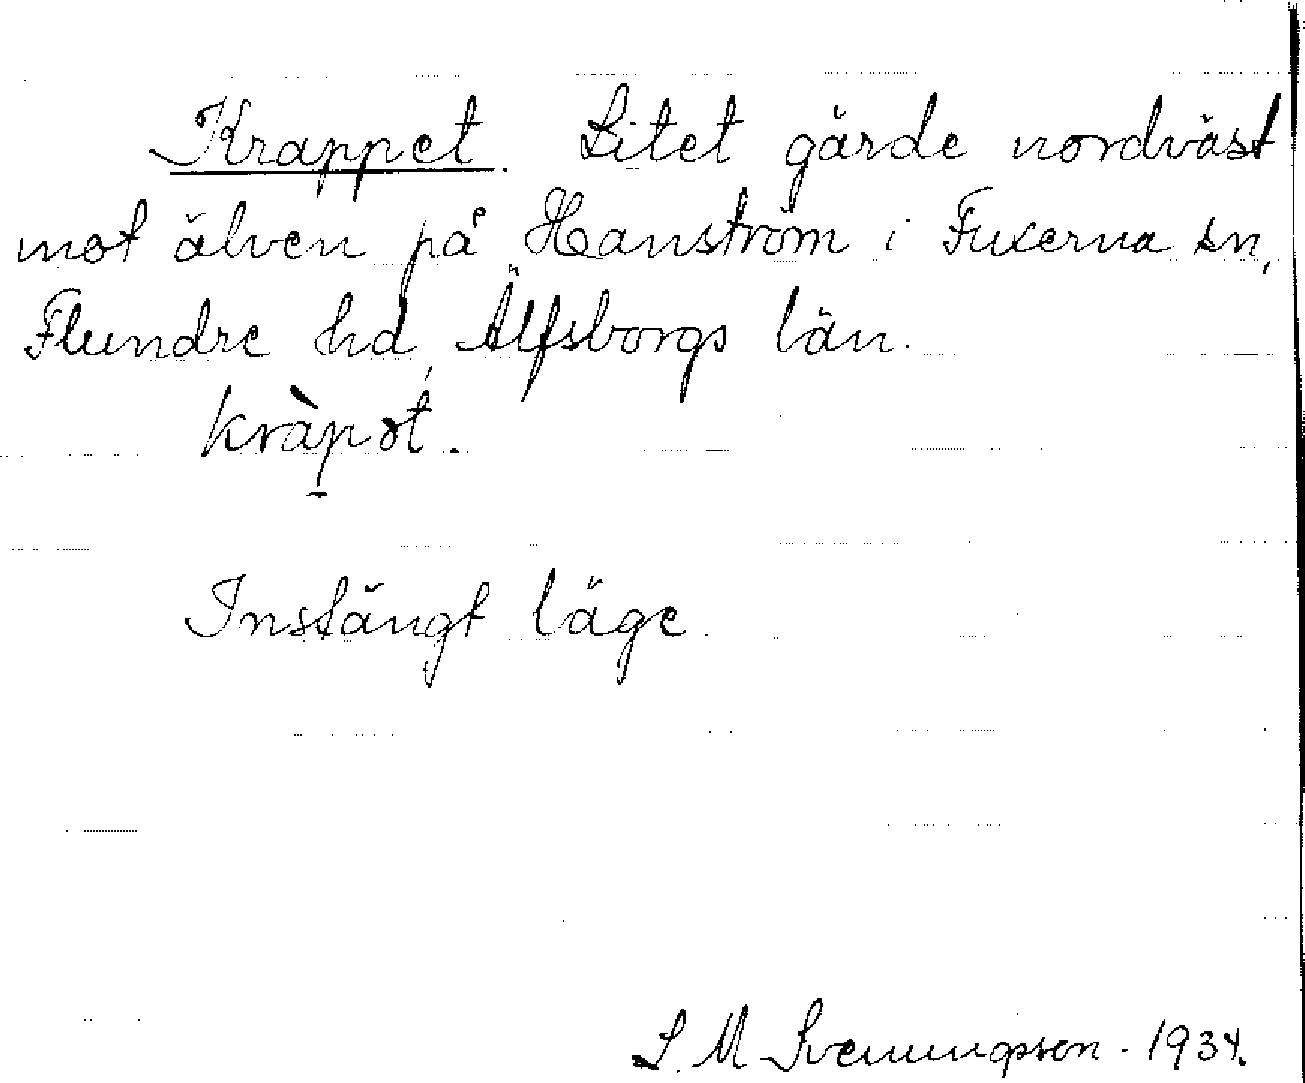 Krappet. Litet gärde nordväst
mot älven på Hanström i Fuxerna sn,
Flundre hd, Älfsborgs län.
kràpət.
Instängt läge.
S. M. Svenungsson. 1934.